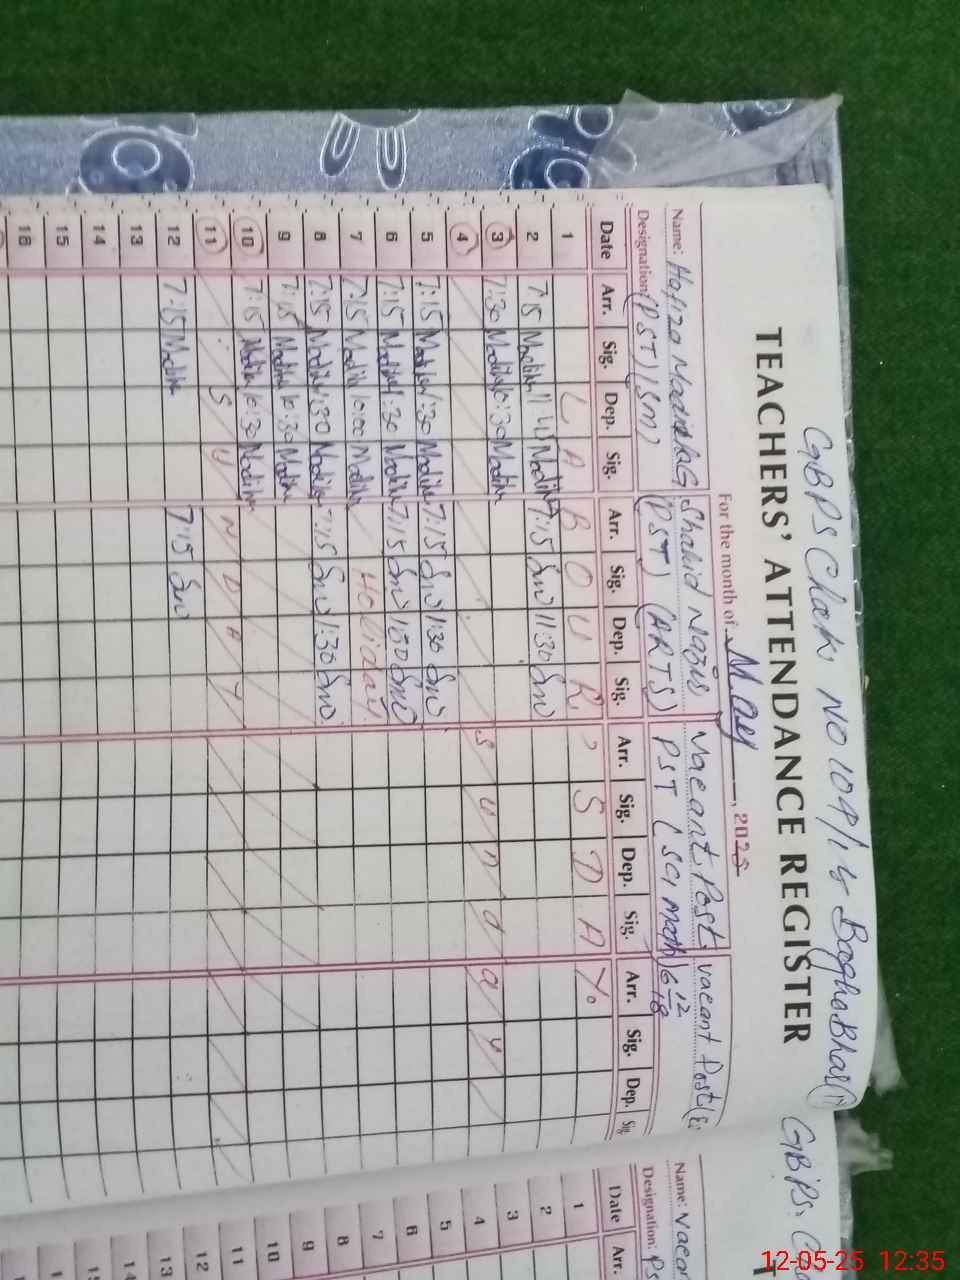 GBPS Chak No 104/15 Bagha Bhar
TEACHERS' ATTENDANCE REGISTER
For the month of May, 2025
Name: Hafiza Shahid Nazir Vacant Post vacant Post
Designation: (PST) (SM) (PST) (ARTS) PST (Sci math)
Date Arr. Sig. Dep. Sig. Arr. Sig. Dep. Sig. Arr. Sig. Dep. Sig. Arr. Sig. Dep. Sig.
1 L A B O U R , S D A Y.
2 7:15 Madiha 11:45 Madiha 7:15 Sno 11:30 Sno
3 7:30 Madiha 10:30 Madiha
4 S u n d a y
5 7:15 Madiha 1:30 Madiha 7:15 Sno 1:30 Sno
6 7:15 Madiha 1:30 Madiha 7:15 Sno 1:30 Sno
7 7:15 Madiha 10:00 Madiha Holiday
8 7:15 Madiha 1:30 Madiha 7:15 Sno 1:30 Sno
9 7:15 Madiha 10:30 Madiha
10 7:15 Madiha 10:30 Madiha
11 S U N D A Y
12 7:15 Madiha 7:15 Sno
13
14
15
16
GBPS. C
Name: Vacan
Designation: PS
Date Arr.
1
2
3
4
5
6
7
8
9
10
11
12
13
14
12-05-25 12:35